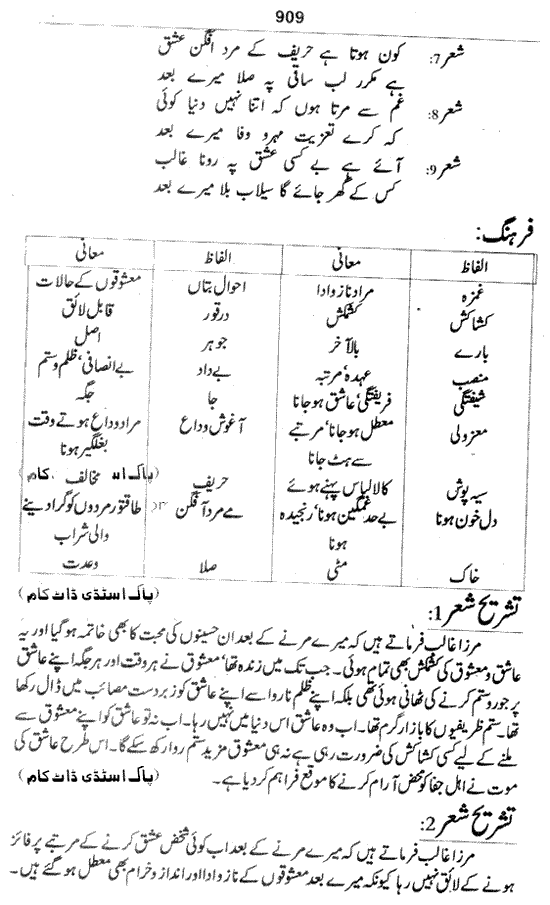 909
شعر 7: کون ہوتا ہے حریف کے مرد افگن عشق
ہے مکرر لب ساقی پہ صلا میرے بعد
شعر 8: غم سے مرتا ہوں کہ اتنا نہیں دنیا کوئی
کہ کرے تعزیت مہرو وفا میرے بعد
شعر 9: آئے ہے بے کسی عشق پہ رونا غالب
کس کے گھر جائے گا سیلاب بلا میرے بعد
فرہنگ:
الفاظ معانی الفاظ معانی
غمزہ مراد ناز و ادا احوال بتاں معشوقوں کے حالات
کشاکش کشمکش درقور قابل لائق
بارے بالآخر جوہر اصل
منصب عہدہ، مرتبہ بے داد بے انصافی، ظلم و ستم
شیفتگی فریفتگی، عاشق ہو جانا جا جگہ
معزولی معطل ہو جانا، مرتبے آغوش وداع مراد وداع ہوتے وقت
سے ہٹ جانا بغلگیر ہونا
سیہ پوش کالا لباس پہنے ہوئے حریف مخالف
دل خون ہونا بے حد غمگین ہونا، رنجیدہ مے مرد آفگن طاقتور مردوں کو گرا دینے
ہونا والی شراب
خاک مٹی صلا وعدت
تشریح شعر 1: (پاک اسٹڈی ڈاٹ کام)
مرزا غالب فرماتے ہیں کہ میرے مرنے کے بعد ان حسینوں کی محبت کا بھی خاتمہ ہو گیا اور یہ
عاشق و معشوق کی کشمکش بھی تمام ہوئی۔ جب تک میں زندہ تھا، معشوق نے ہر وقت اور ہر جگہ اپنے عاشق
پر جور و ستم کرنے کی ٹھانی ہوئی تھی بلکہ اپنے ظلم ناروا سے اپنے عاشق کو زبردست مصائب میں ڈال رکھا
تھا۔ ستم ظریفوں کا بازار گرم تھا۔ اب وہ عاشق اس دنیا میں نہیں رہا۔ اب نہ تو عاشق کو اپنے معشوق سے
ملنے کے لیے کسی کشاکش کی ضرورت رہی ہے نہ ہی معشوق مزید ستم روا رکھ سکے گا۔ اس طرح عاشق کی
موت نے اہل جفا کو محض آرام کرنے کا موقع فراہم کر دیا ہے۔ (پاک اسٹڈی ڈاٹ کام)
تشریح شعر 2:
مرزا غالب فرماتے ہیں کہ میرے مرنے کے بعد اب کوئی شخص عشق کرنے کے مرتبے پر فائز
ہونے کے لائق نہیں رہا کیونکہ میرے بعد معشوقوں کے ناز و ادا اور انداز و خرام بھی معطل ہو گئے ہیں۔